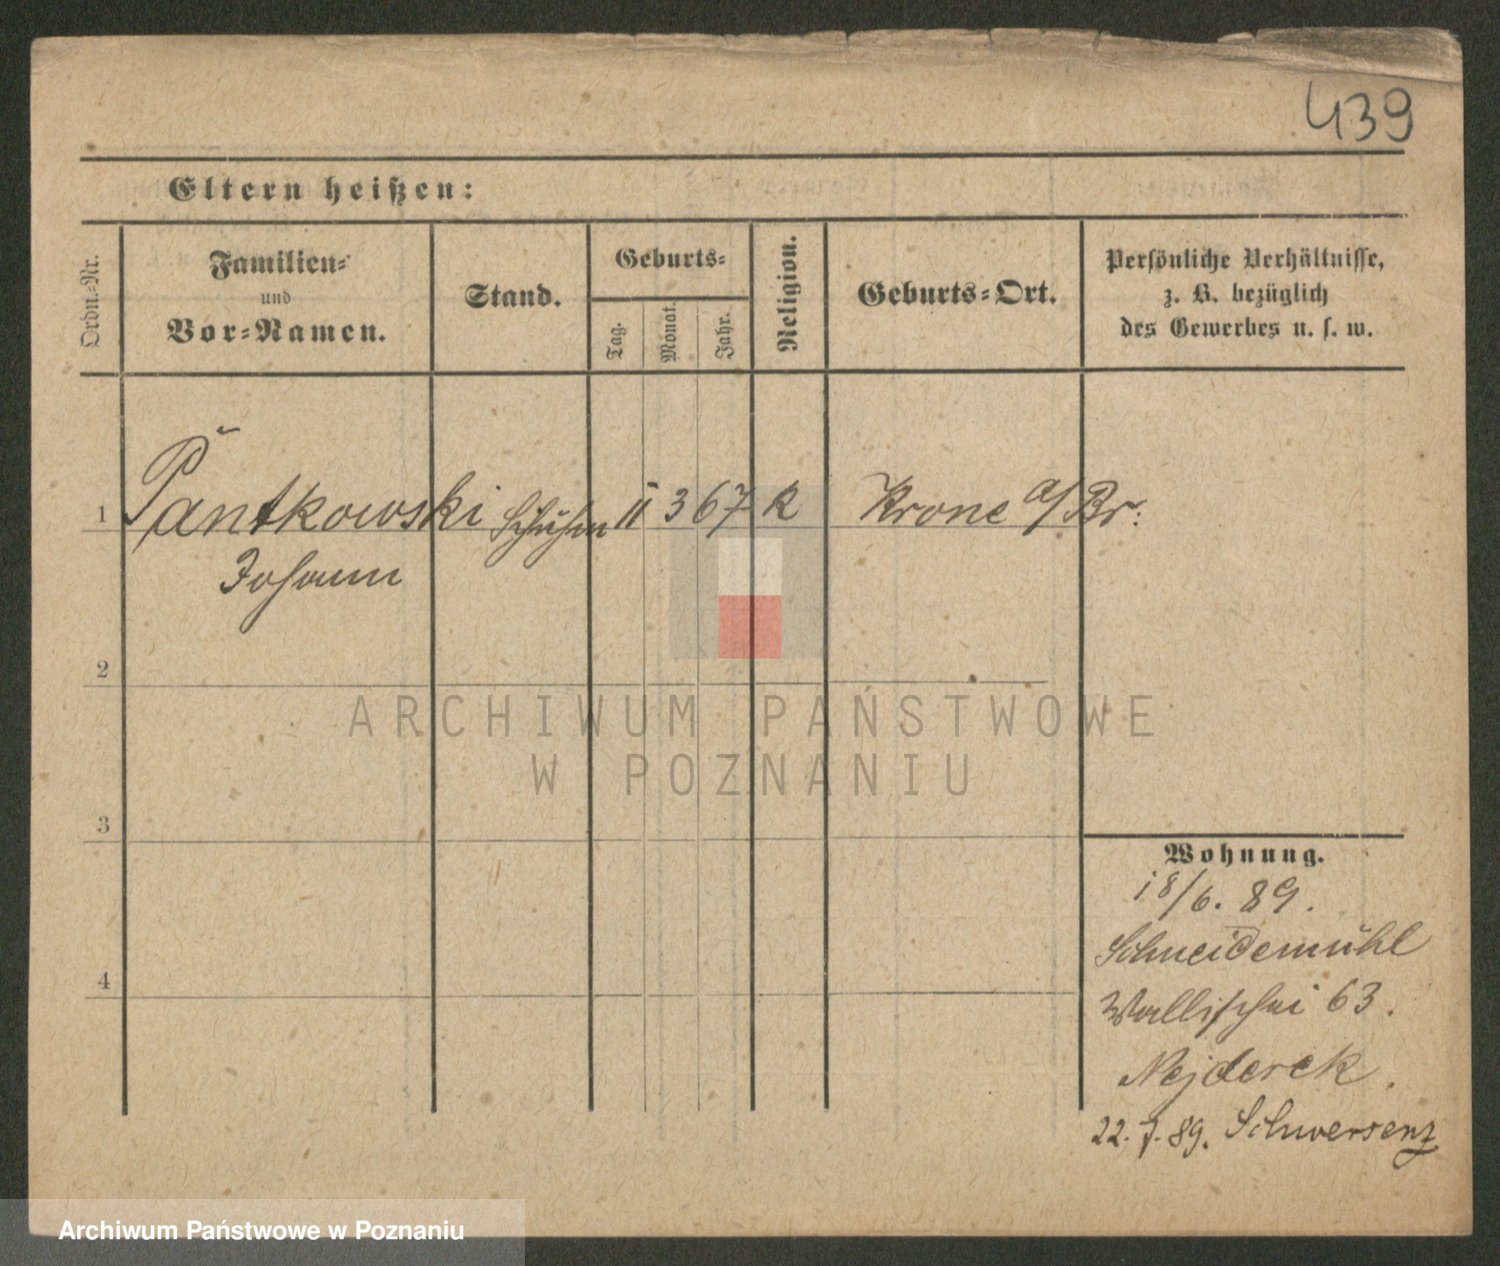 439
Eltern heißen:
Ordn.-Nr.
Familien-
und
Vor-Namen.
Stand.
Geburts-
Tag.
Monat.
Jahr.
Religion.
Geburts-Ort.
Persönliche Verhältnisse,
z. B. bezüglich
des Gewerbes u. s. w.
1 Pantkowski 11 3 67 K Krone a/Br:
Johann
2
3
4
Wohnung.
18/6. 89.
Schneidemühl
Wallischei 63.
Nejderek.
22. 7. 89. Schwersenz
ARCHIWUM PAŃSTWOWE
W POZNANIU
Archiwum Państwowe w Poznaniu